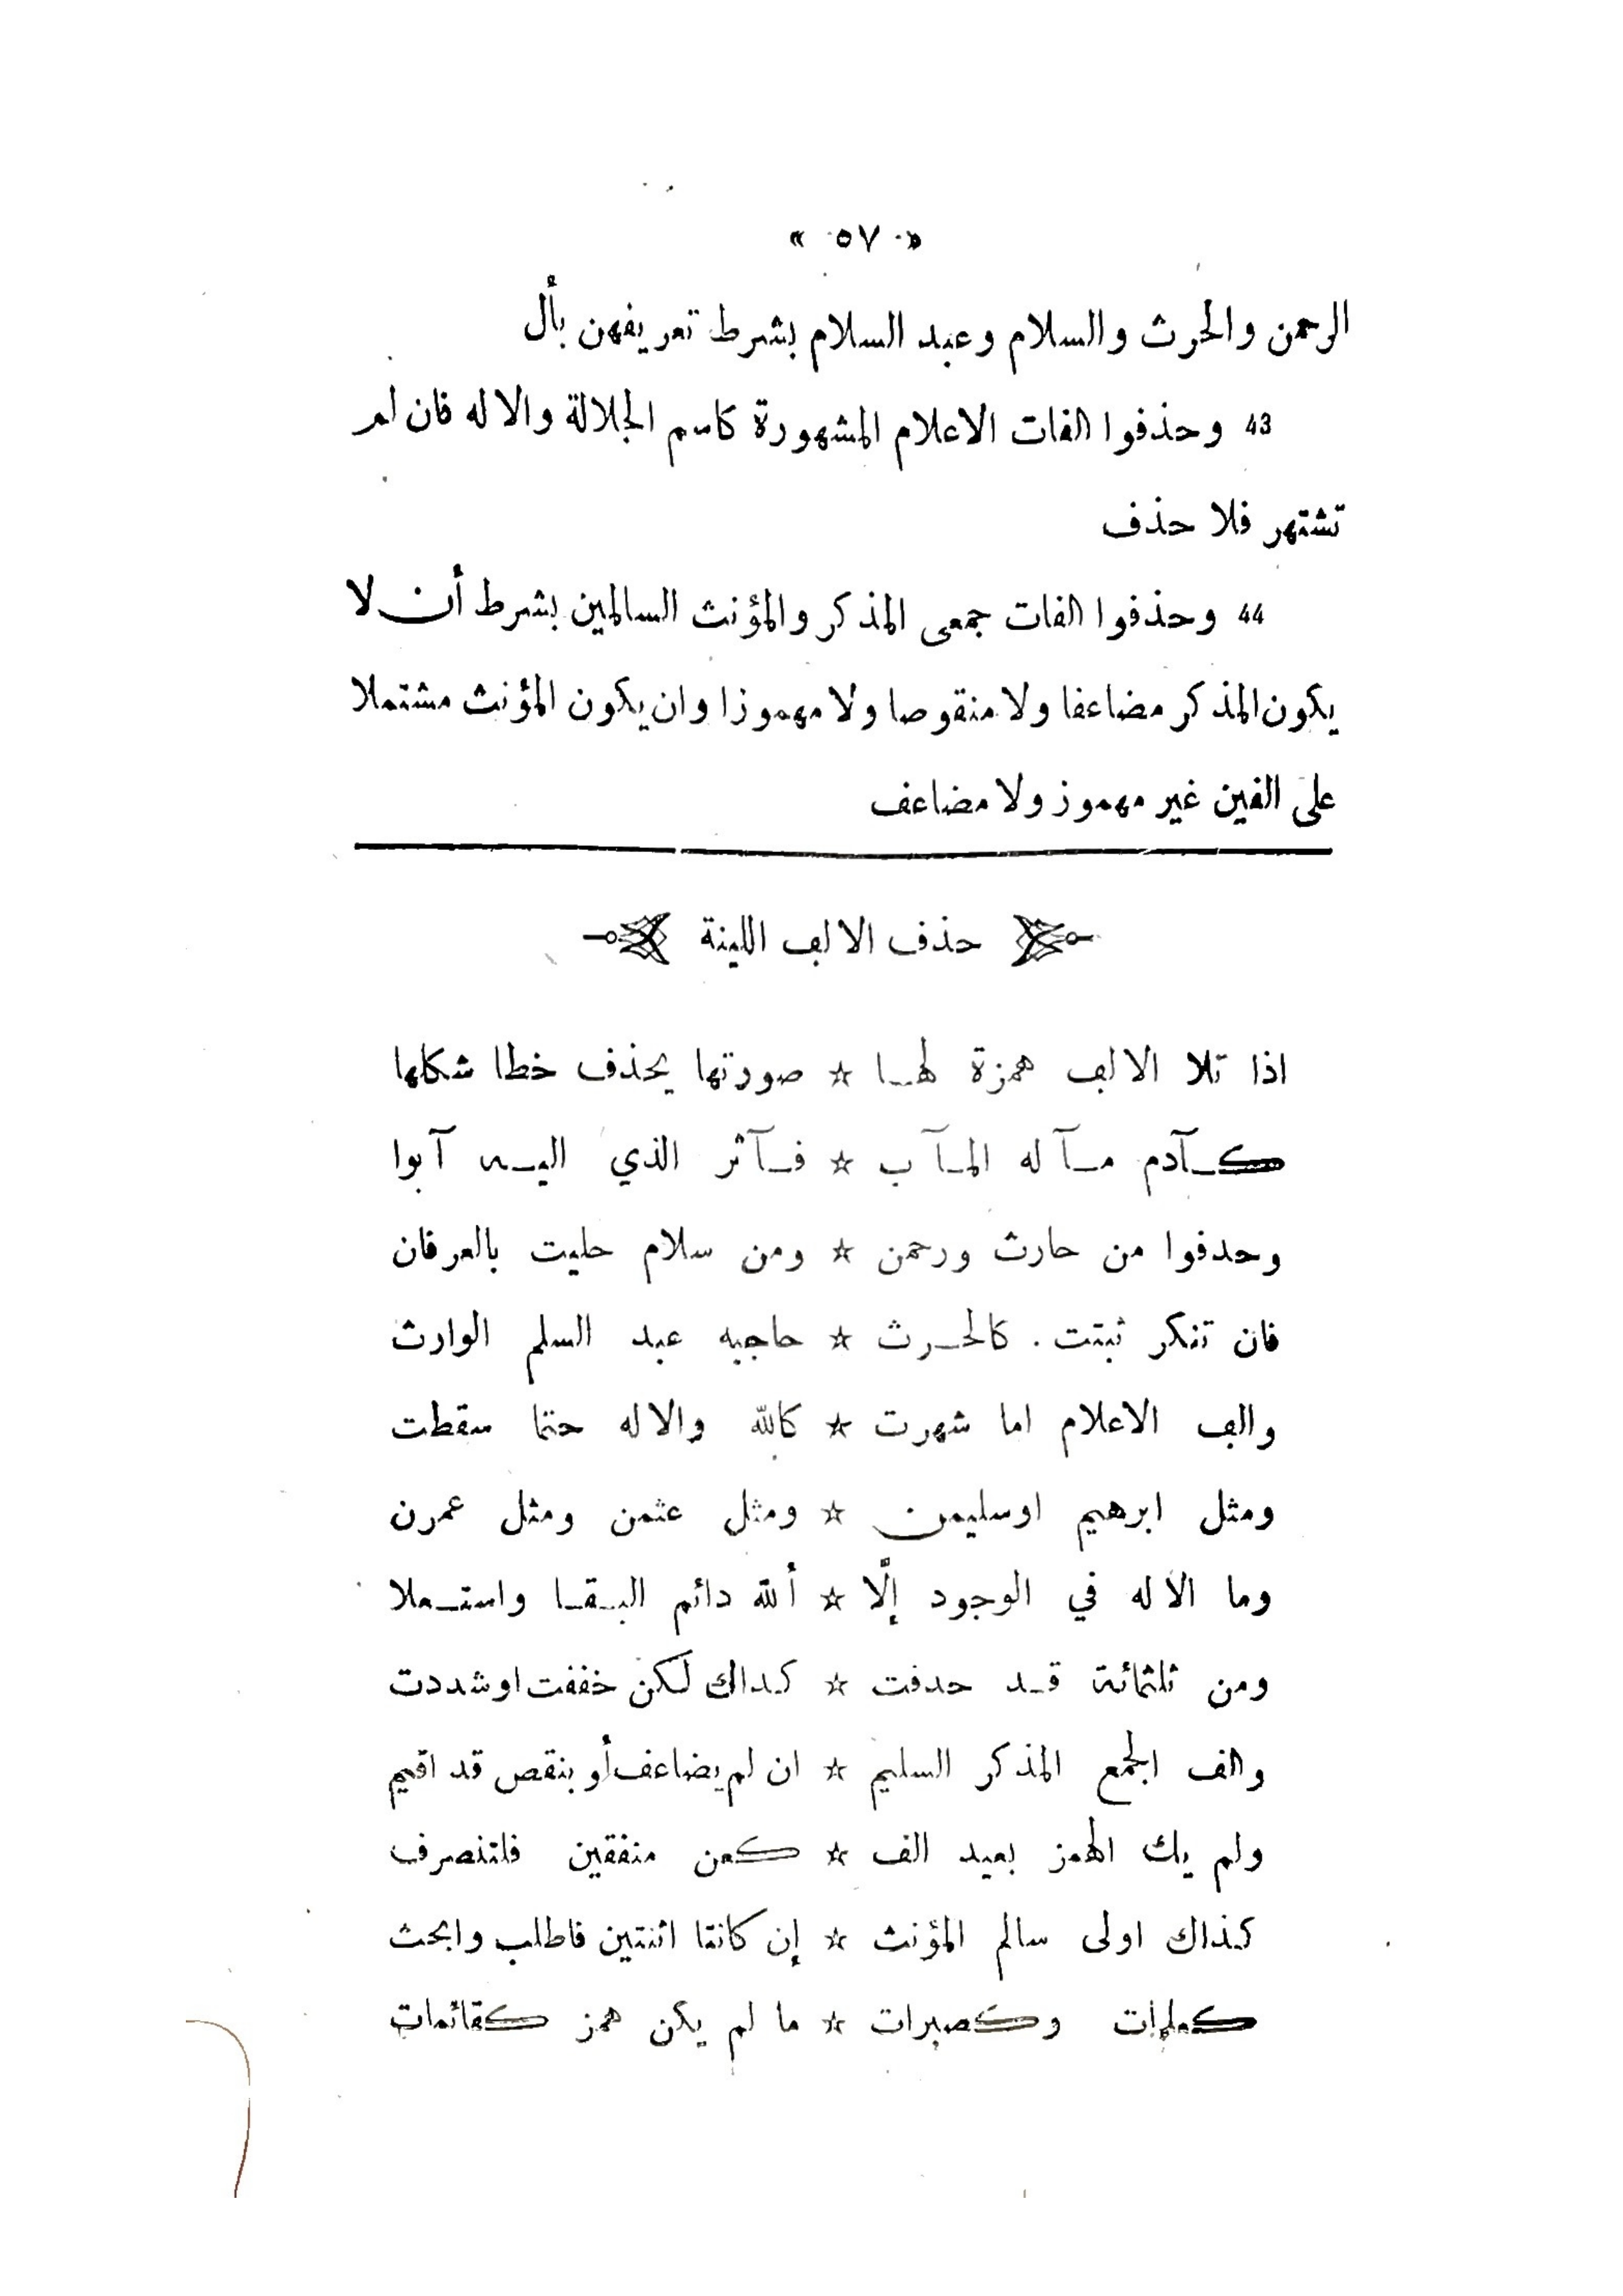 « ٥٧ »
الرحمن والحرث والسلام وعبد السلام بشرط تعريفهن بأل
43 وحذفوا الفات الاعلام المشهورة كاسم الجلالة والاله فان لم
تشتهر فلا حذف
44 وحذفوا الفات جمعى المذكر والمؤنث السالمين بشرط أن لا
يكون المذكر مضاعفا ولا منقوصا ولا مهموزا وان يكون المؤنث مشتملا
على الفين غير مهموز ولا مضاعف
حذف الالف اللينة
اذا تلا الالف همزة لهـا ☆ صورتها يحذف خطا شكلها
كـآدم مـآ له المـآ ب ☆ فـآثر الذي اليـه آبوا
وحدفوا من حارث ورحمن ☆ ومن سلام حليت بالعرفان
فان تنكر ثبتت . كالحـرث ☆ حاجبه عبد السلم الوارث
والف الاعلام اما شهرت ☆ كالله والاله حتما سقطت
ومثل ابرهيم اوسليمن ☆ ومثل عثمن ومثل عمرن
وما الاله في الوجود إلّا ☆ ألله دائم البـقـا واستـعلا
ومن ثلثمائة قـد حدفت ☆ كداك لكن خففت اوشددت
والف الجمع المذكر السليم ☆ ان لم يضاعف أو بنقص قد اقيم
ولم يك الهمز بعيد الف ☆ كعن منفقين فلتنصرف
كذاك اولى سالم المؤنث ☆ إن كانتا اثنتين فاطلب وابحث
وكصبرات ☆ ما لم يكن همز كقائمات